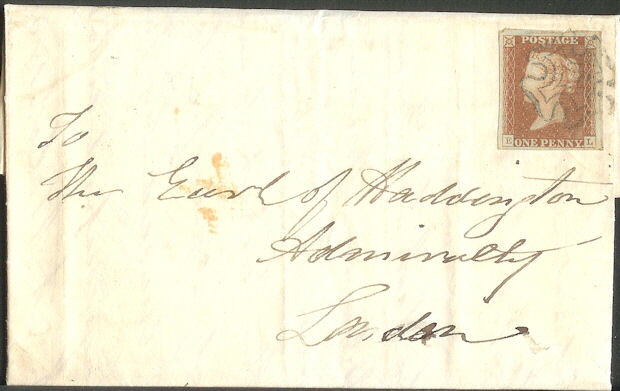 POSTAGE
E ONE PENNY L
To
The Earl of Haddington
Admiralty
London